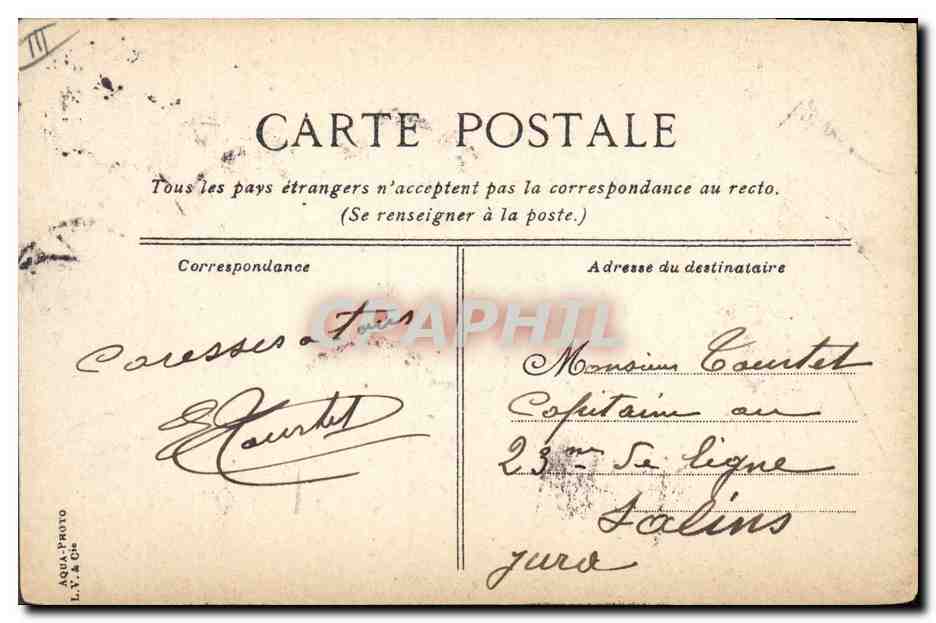 III
CARTE POSTALE
Tous les pays étrangers n'acceptent pas la correspondance au recto.
(Se renseigner à la poste.)
Correspondance
Caresses a tous
E Tourtet
Adresse du destinataire
Monsieur Tourtet
Capitaine au
23me de ligne
Salins
Jura
AQUA-PHOTO
L.V. & Cie
CPAPHIL